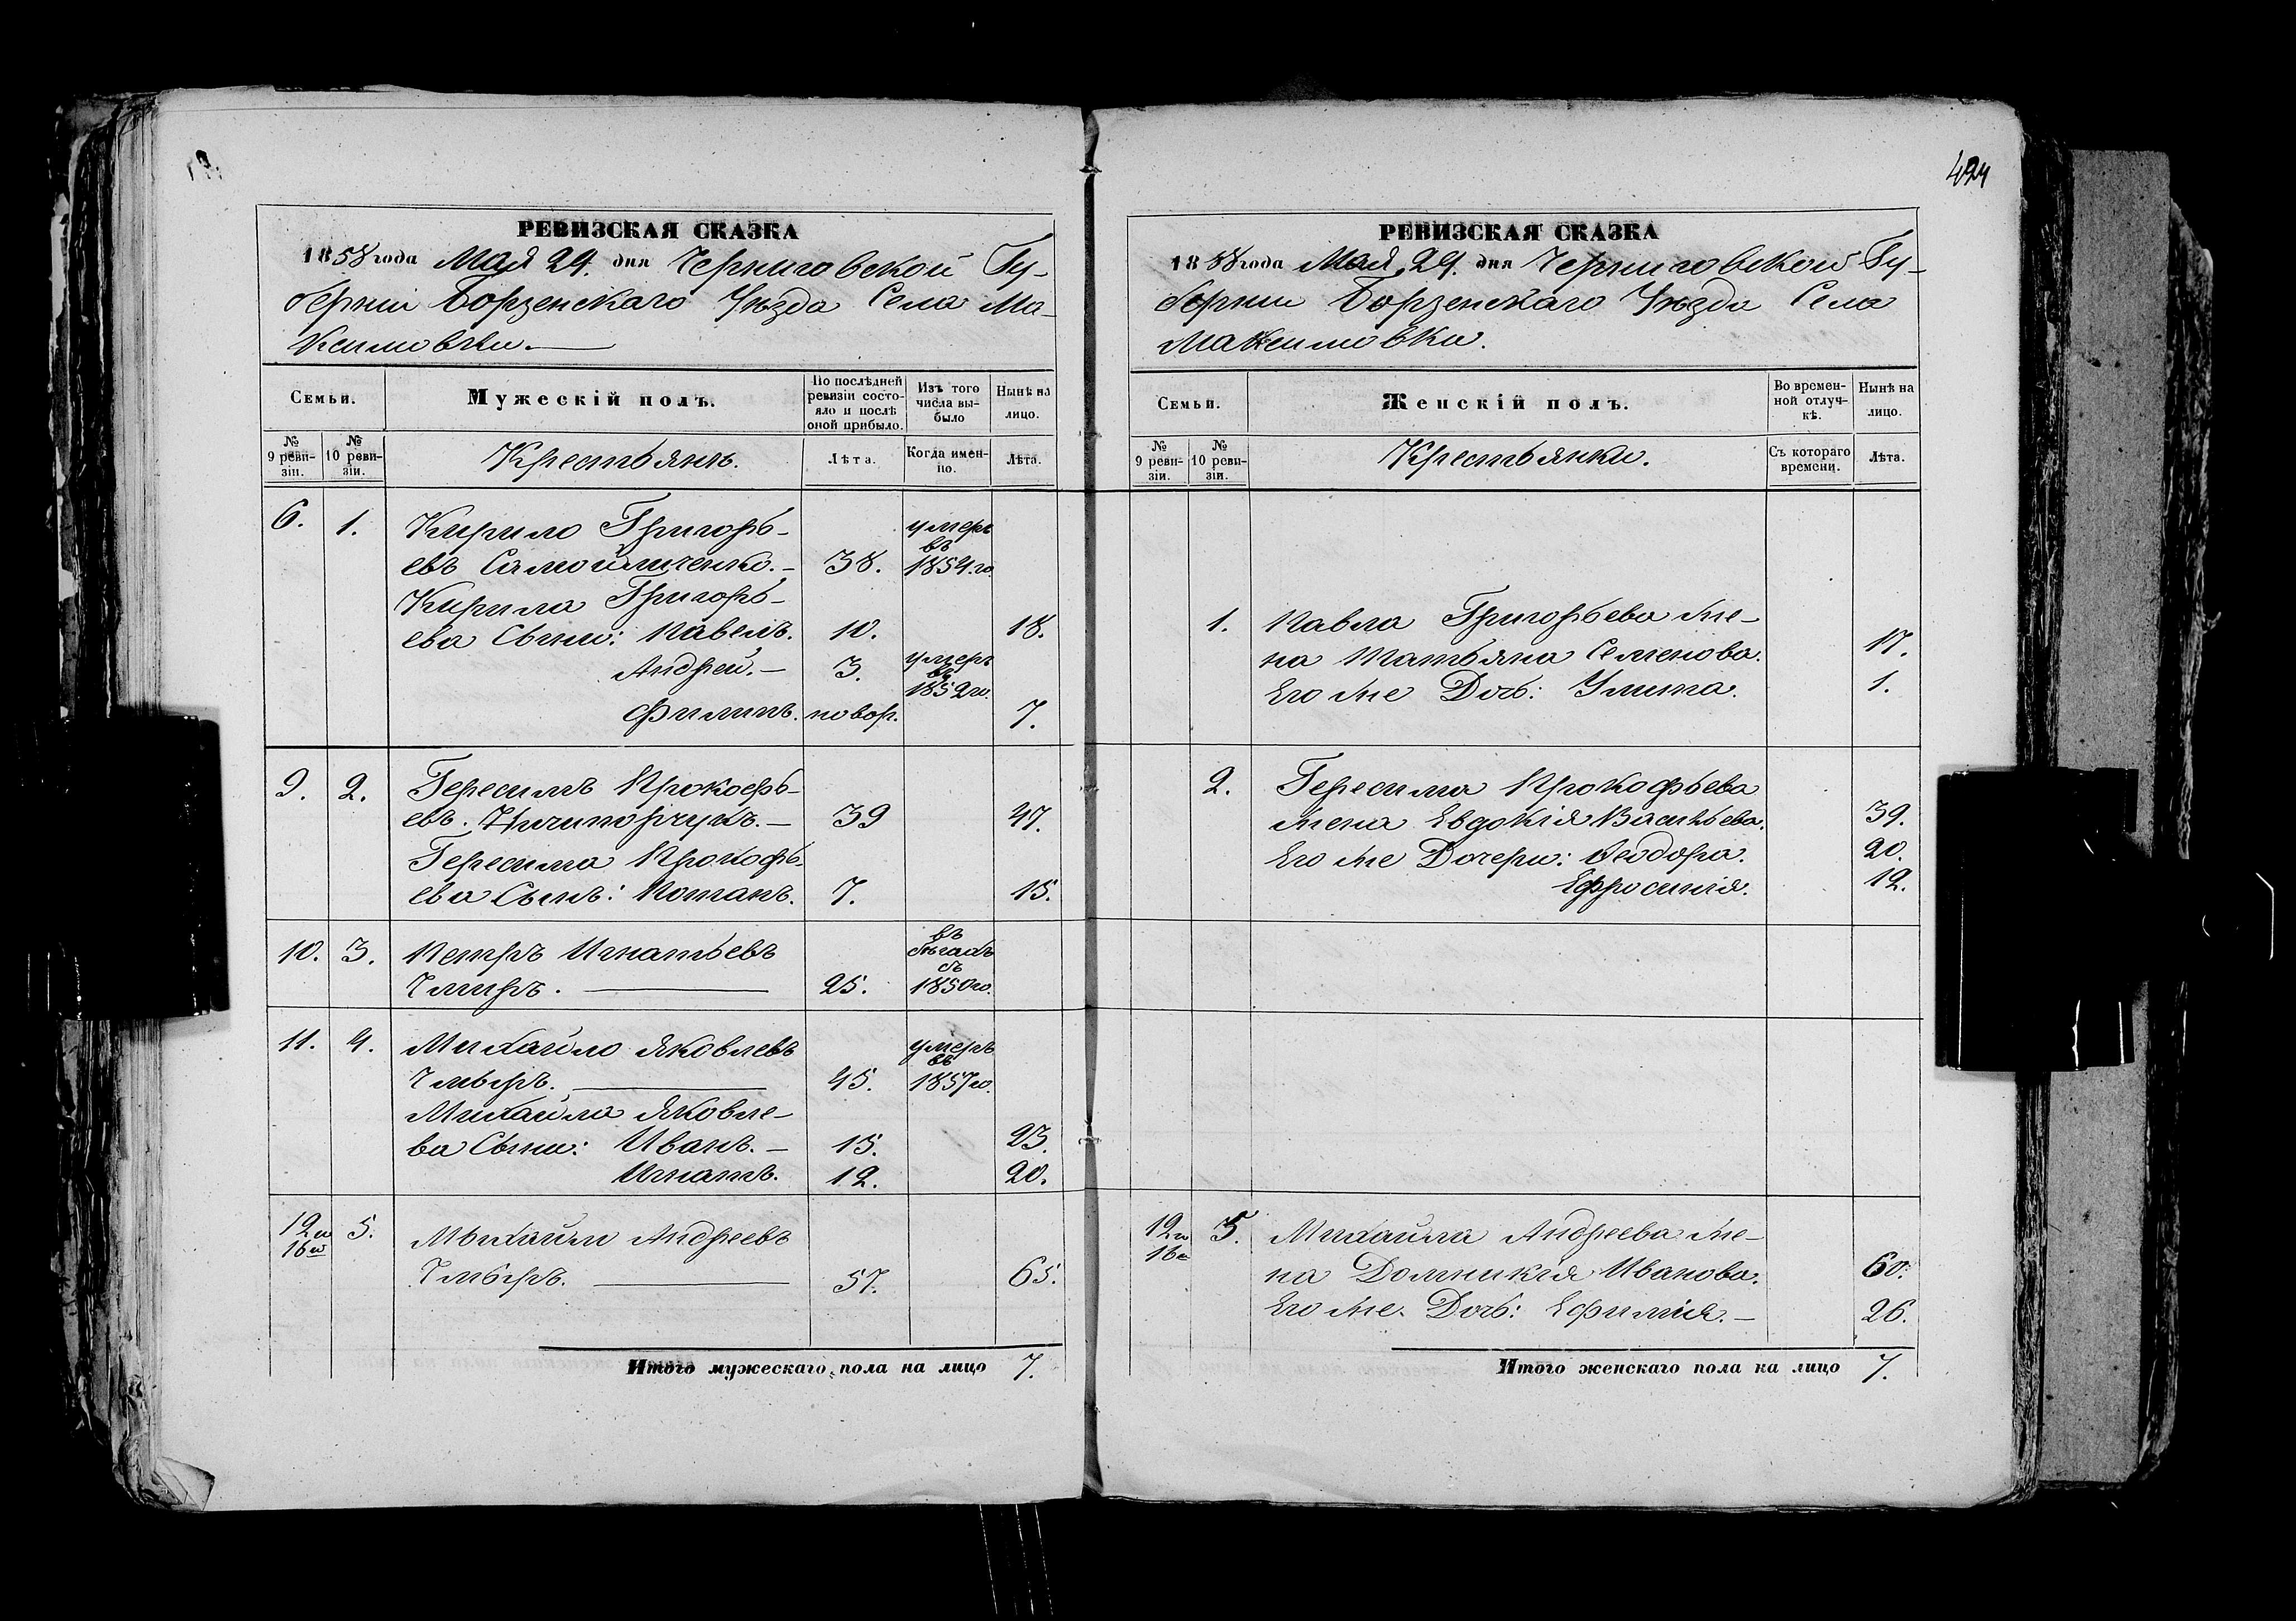 РЕВИЗСКАЯ СКАЗКА
1858 года Мая 24. дня Черниговской Гу-
берніи Борзенскаго Уѣзда Села Ма-
ксимовки.
Семьи.
Мужескій полъ.
По послѣдней
ревизіи состо-
яло и послѣ
оной прибыло.
Изъ того
числа вы-
было
Нынѣ на
лицо.
№
9 реви-
зіи.
№
10 реви-
зіи.
Крестьянъ.
Лѣта.
Когда имен-
но.
Лѣта.
6. 1. Кирило Григорь-
евъ Самойличенко. 38. умеръ въ 1854.го
Кирила Григорь-
ева Сыни: Павелъ. 10. 18.
Андрей. 3. умеръ въ 1852го.
Филипъ. новор. 7.
9. 2. Гересимъ Прокофь-
евъ. Ничипорчукъ. 39 47.
Гересима Прокофь-
ева Сынъ: Потапъ. 7. 15.
10. 3. Петръ Игнатьевъ
Чмиръ. 25. въ бѣгахъ съ 1850го.
11. 4. Михайло Яковлевъ
Чмыръ. 45. умеръ въ 1857го.
Михайла Яковле-
ва Сыни: Иванъ. 15. 23.
Игнатъ. 12. 20.
12и 16й 5. Михайли Андреевъ
Чмыръ. 57. 65.
Итого мужескаго пола на лицо 7.
424
РЕВИЗСКАЯ СКАЗКА
1858 года Мая 24. дня Черниговской Гу-
берніи Борзенскаго Уѣзда Села
Максимовки.
Семьи.
Женскій полъ.
Во времен-
ной отлуч-
кѣ.
Нынѣ на
лицо.
№
9 реви-
зіи.
№
10 реви-
зіи.
Крестьянки.
Съ котораго
времени.
Лѣта.
1. Павла Григорьева же-
на Татьяна Семенова. 17.
Его же Дочь: Улита. 1.
2. Гересима Прокофьева
жена Евдокія Васильева. 39.
Его же Дочери: Феодора. 20.
Ефросинія. 12.
12и 16й 5. Михайла Андреева же-
на Домникія Иванова. 60.
Его же. Дочь: Ефимія. 26.
Итого женскаго пола на лицо 7.